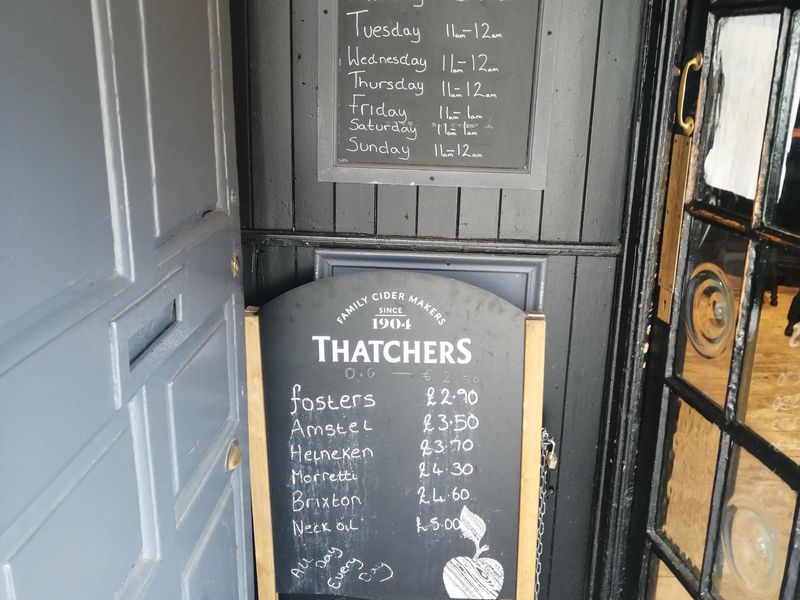 Tuesday 11am-12am
Wednesday 11am-12am
Thursday 11am-12am
Friday 11am-1am
Saturday 11am-1am
Sunday 11am-12am
FAMILY CIDER MAKERS
SINCE
1904
THATCHERS
fosters £2.90
Amstel £3.50
Heineken £3.70
Morretti £4.30
Brixton £4.60
Neck oil £5.00
All Day
Every Day